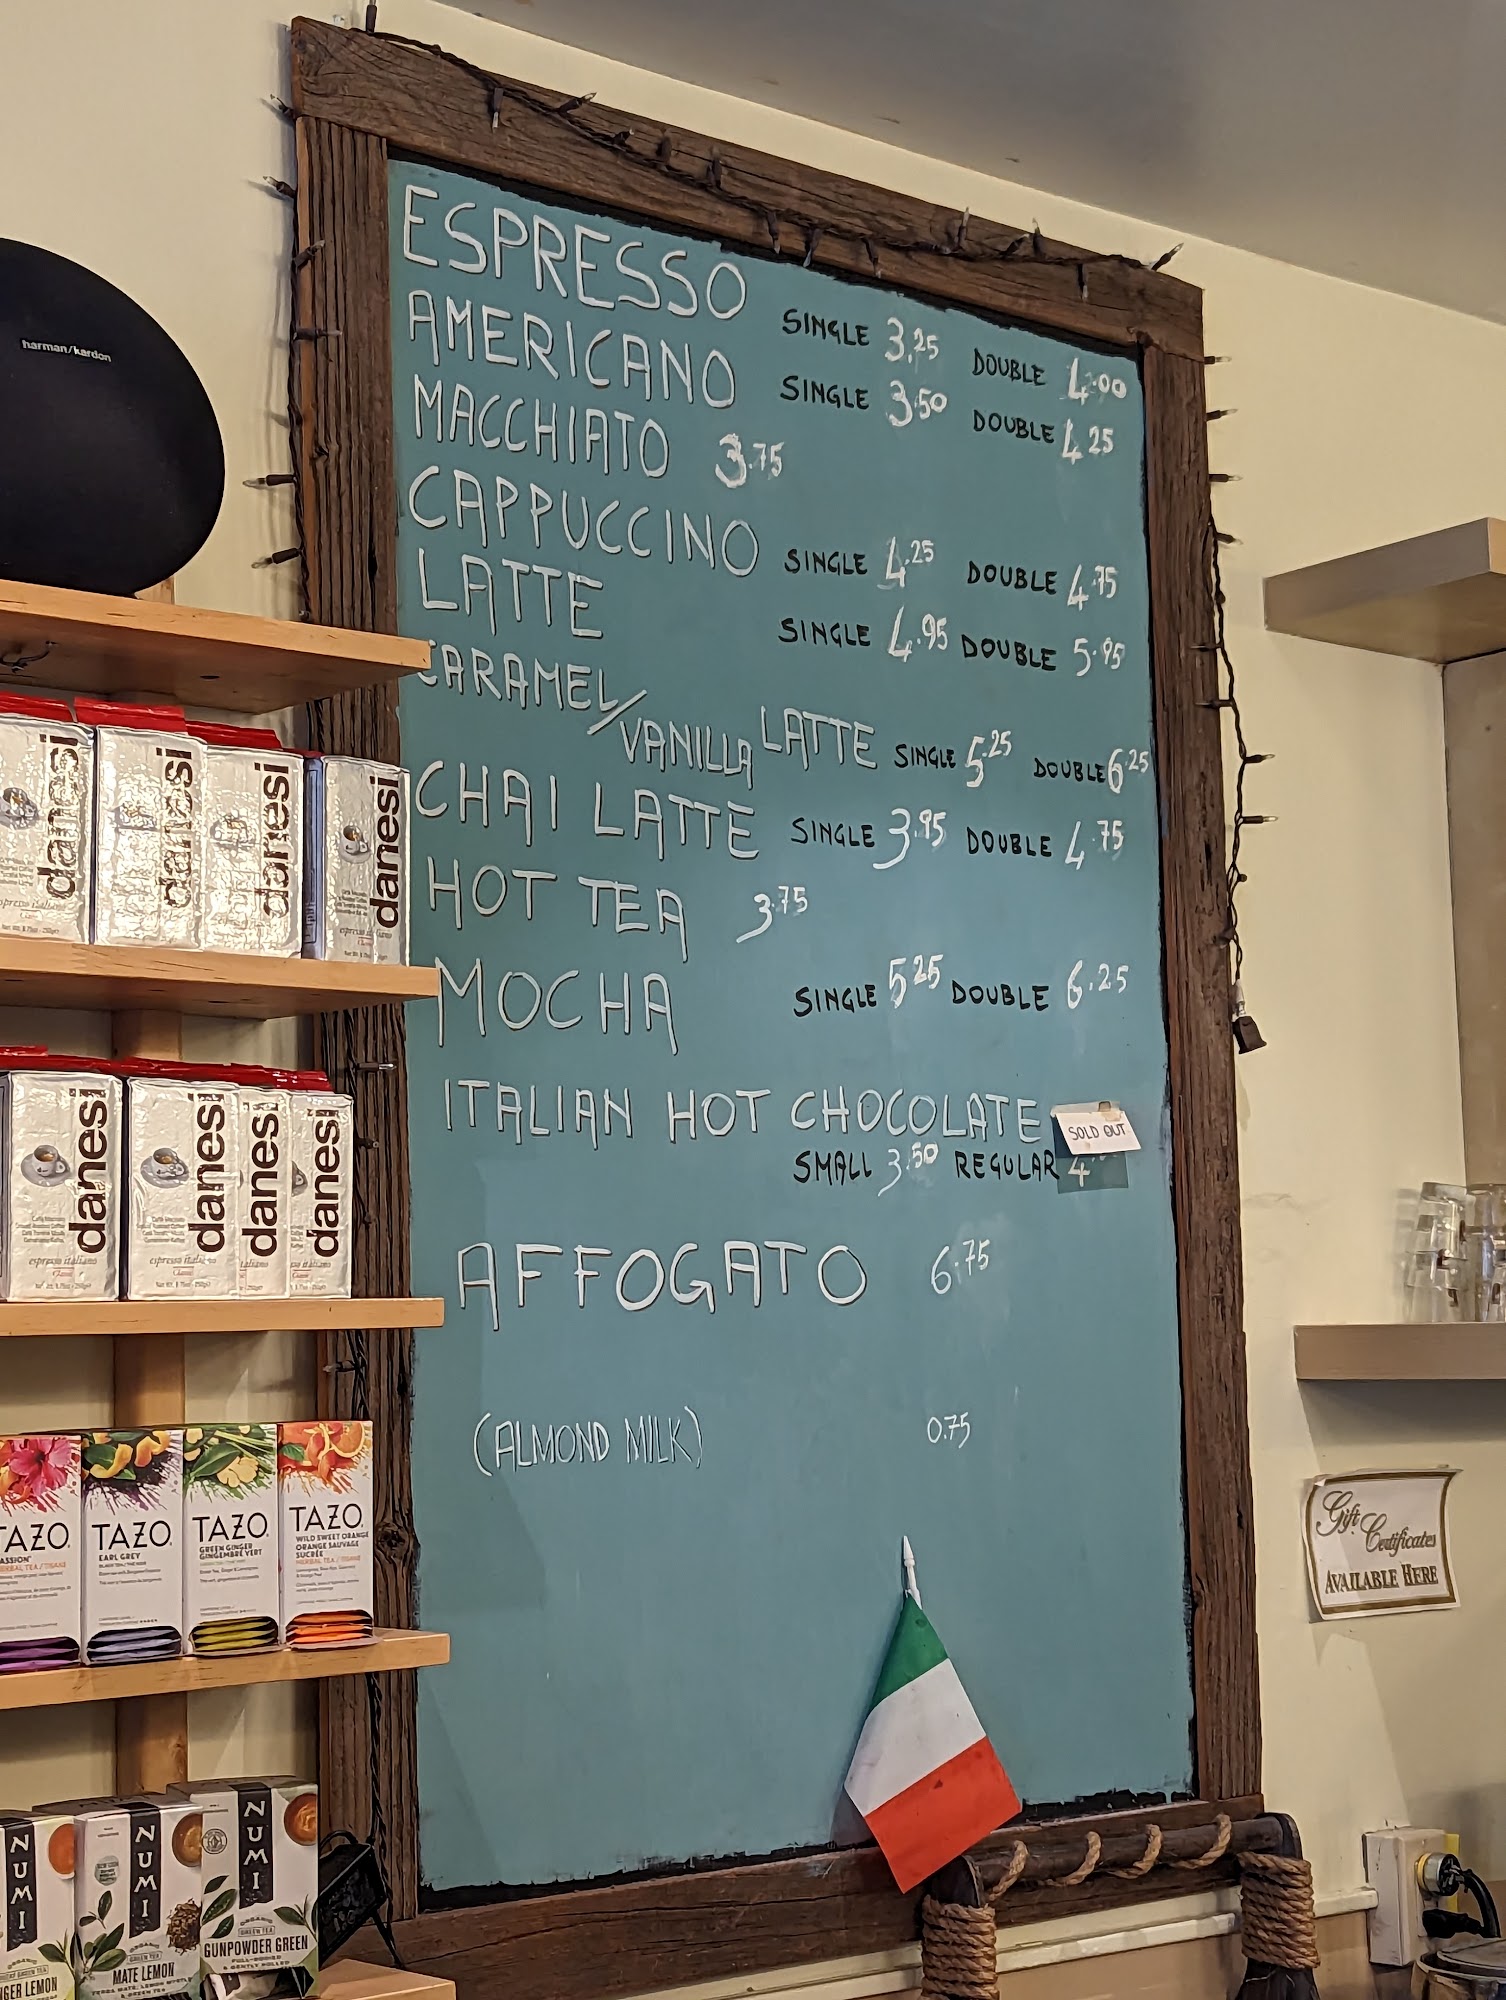 harman/kardon
ESPRESSO SINGLE 3.25 DOUBLE 4.00
AMERICANO SINGLE 3.50 DOUBLE 4.25
MACCHIATO 3.75
CAPPUCCINO SINGLE 4.25 DOUBLE 4.75
LATTE SINGLE 4.95 DOUBLE 5.95
CARAMEL/VANILLA LATTE SINGLE 5.25 DOUBLE 6.25
CHAI LATTE SINGLE 3.95 DOUBLE 4.75
HOT TEA 3.75
MOCHA SINGLE 5.25 DOUBLE 6.25
ITALIAN HOT CHOCOLATE SOLD OUT
SMALL 3.50 REGULAR 4.
AFFOGATO 6.75
(ALMOND MILK) 0.75
danesi
danesi
danesi
danesi
espresso italiano
danesi
danesi
danesi
danesi
espresso italiano
espresso italiano
Classic
TAZO
TAZO
EARL GREY
TAZO
GREEN GINGER
GINGEMBRE VERT
TAZO
WILD SWEET ORANGE
ORANGE SAUVAGE
SUCRÉE
HERBAL TEA / TISANE
NUMI
NUMI
ORGANIC
GREEN TEA
MATE LEMON
NUMI
ORGANIC
GREEN TEA
GUNPOWDER GREEN
FULL-BODIED
& GENTLY ROLLED
Gift
Certificates
AVAILABLE HERE